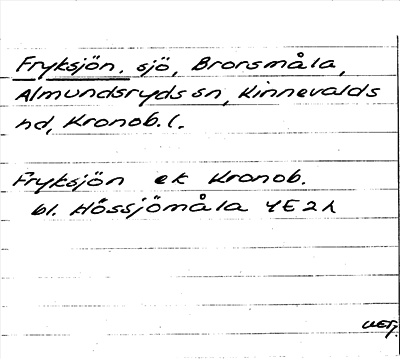 Fryksjön, sjö, Brorsmåla,
Almundsryds sn, Kinnevalds
hd, Kronob. l.
Fryksjön ek Kronob.
bl. Hössjömåla 4E2h